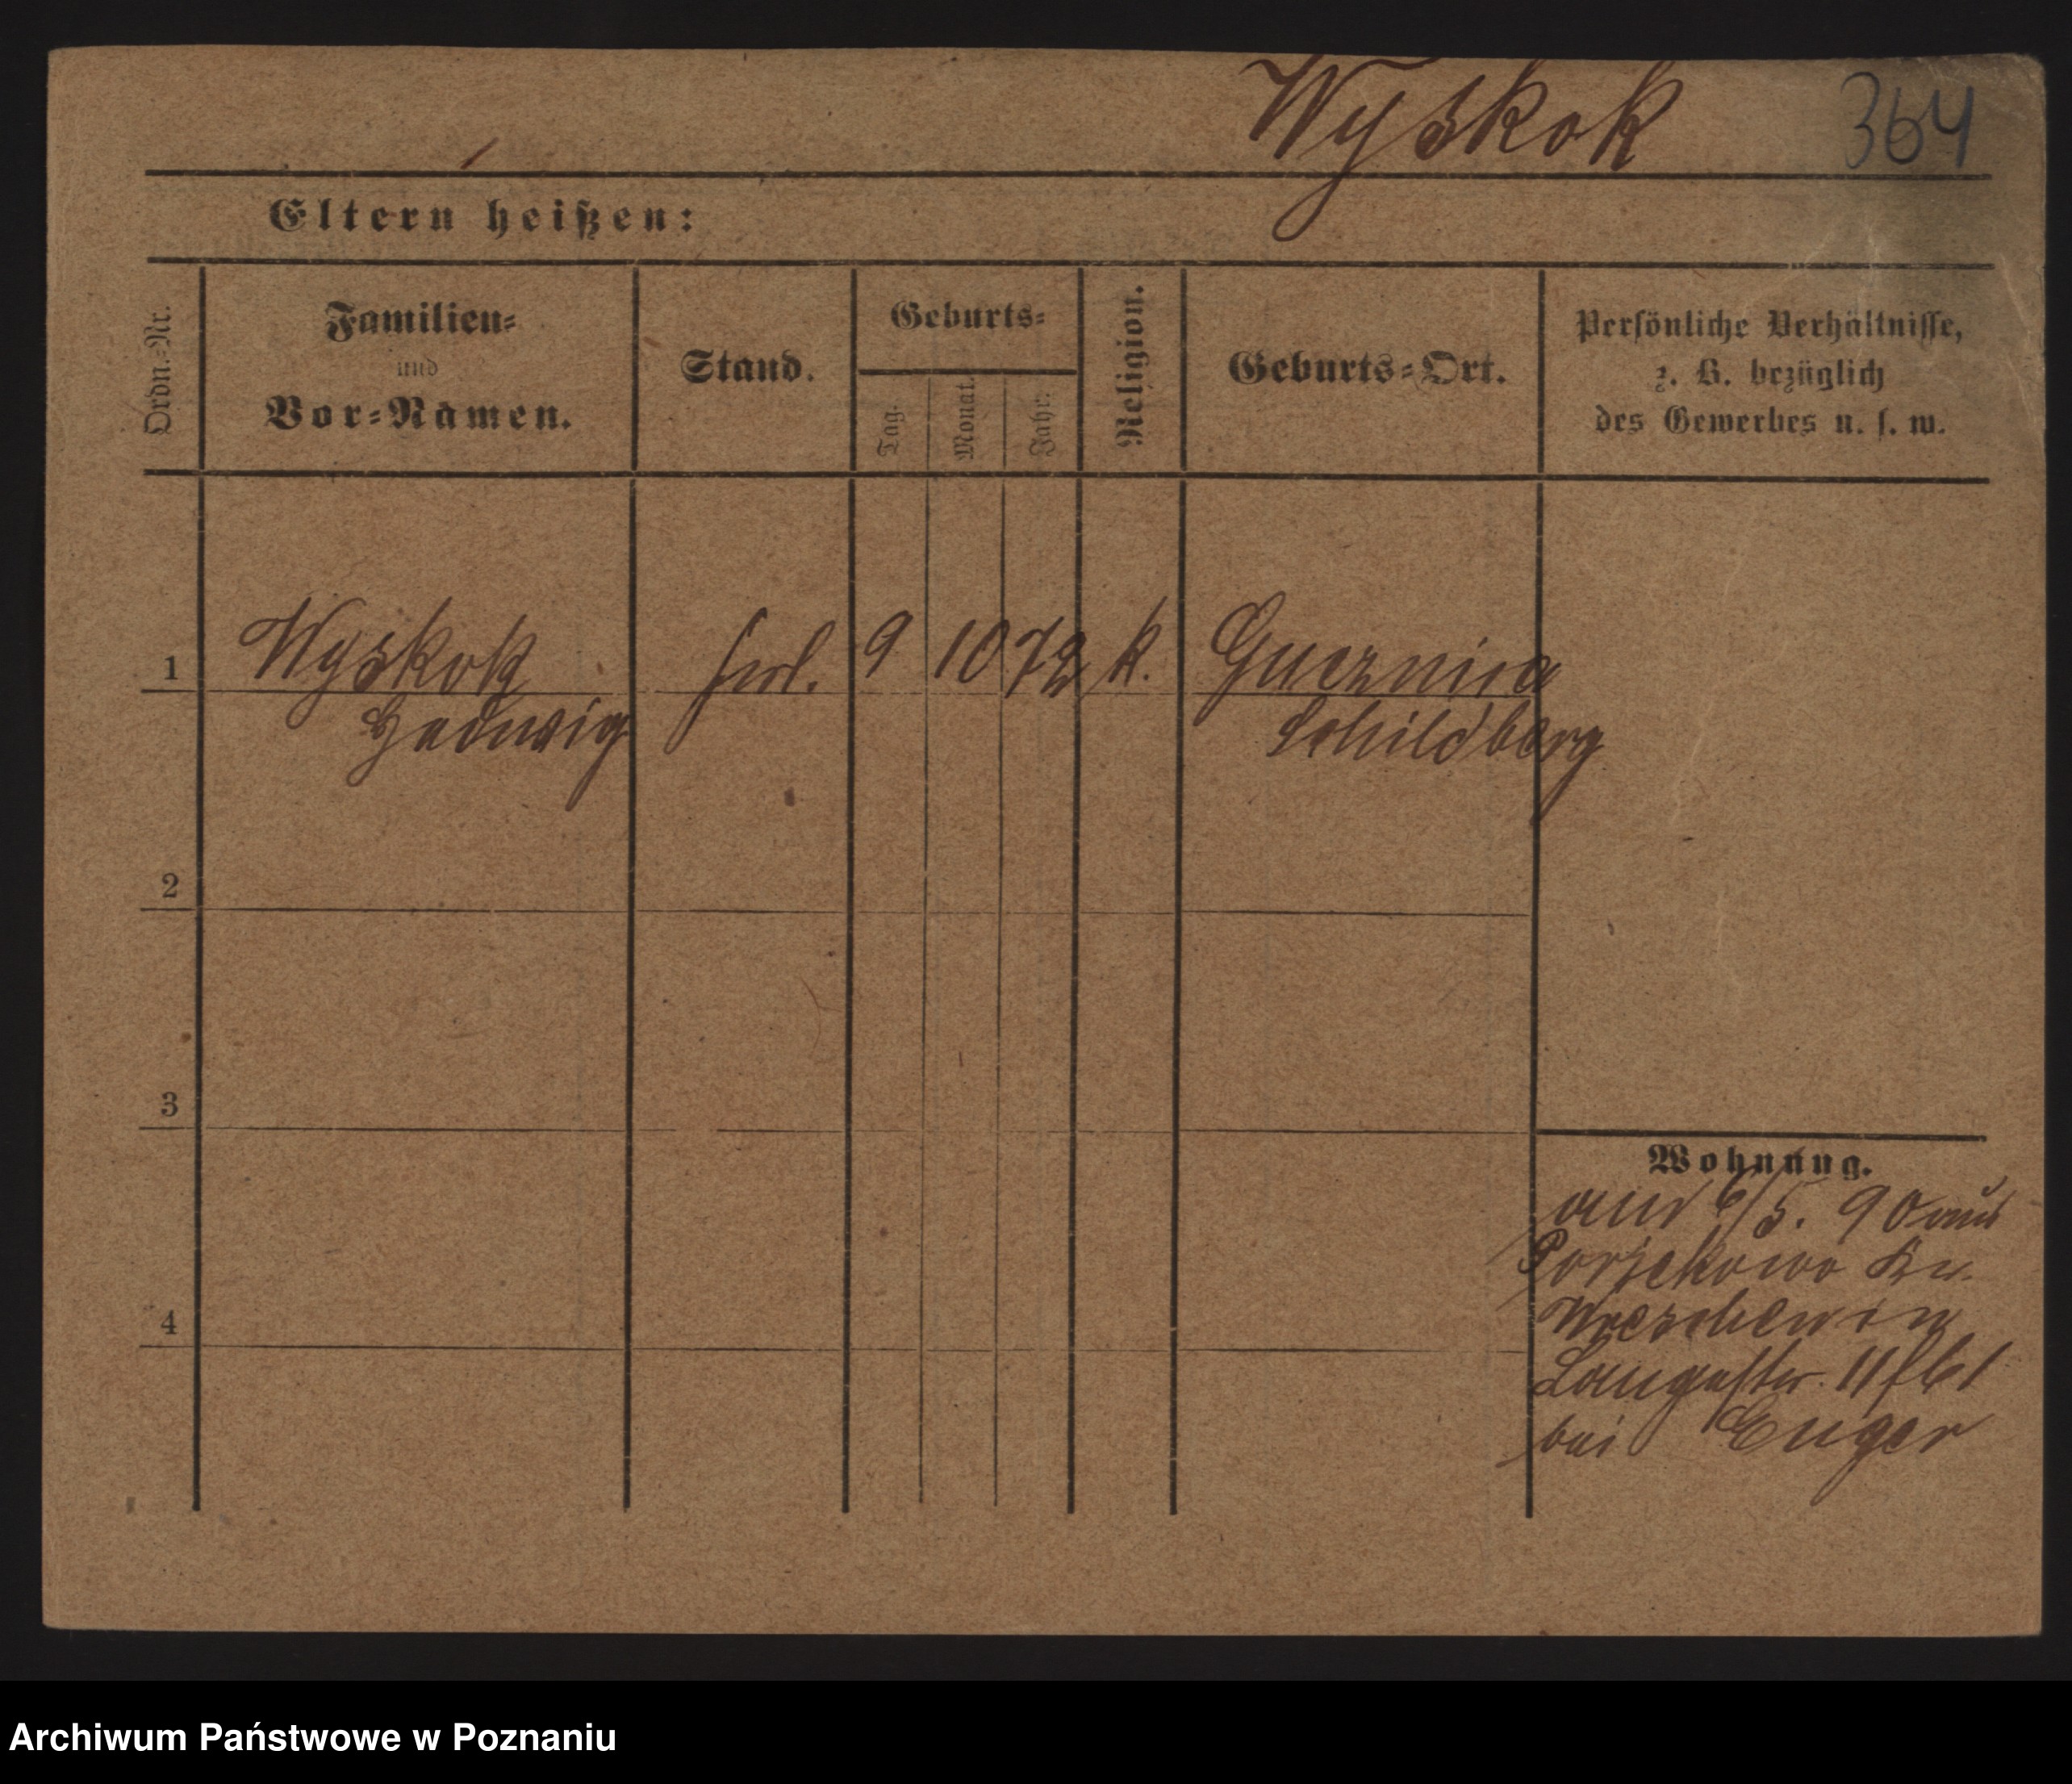 Wyskok 364
Eltern heißen:
Ordn.-Nr.
Familien-
und
Vor-Namen.
Stand.
Geburts-
Tag.
Monat.
Jahr.
Religion.
Geburts-Ort.
Persönliche Verhältnisse,
z. B. bezüglich
des Gewerbes u. s. w.
1 Wyskok 9 10 72 k.
Hedwig Schildberg
2
3
4
Wohnung.
6/5. 90 aus
Kr.
Wreschen in
bei Enger
Archiwum Państwowe w Poznaniu